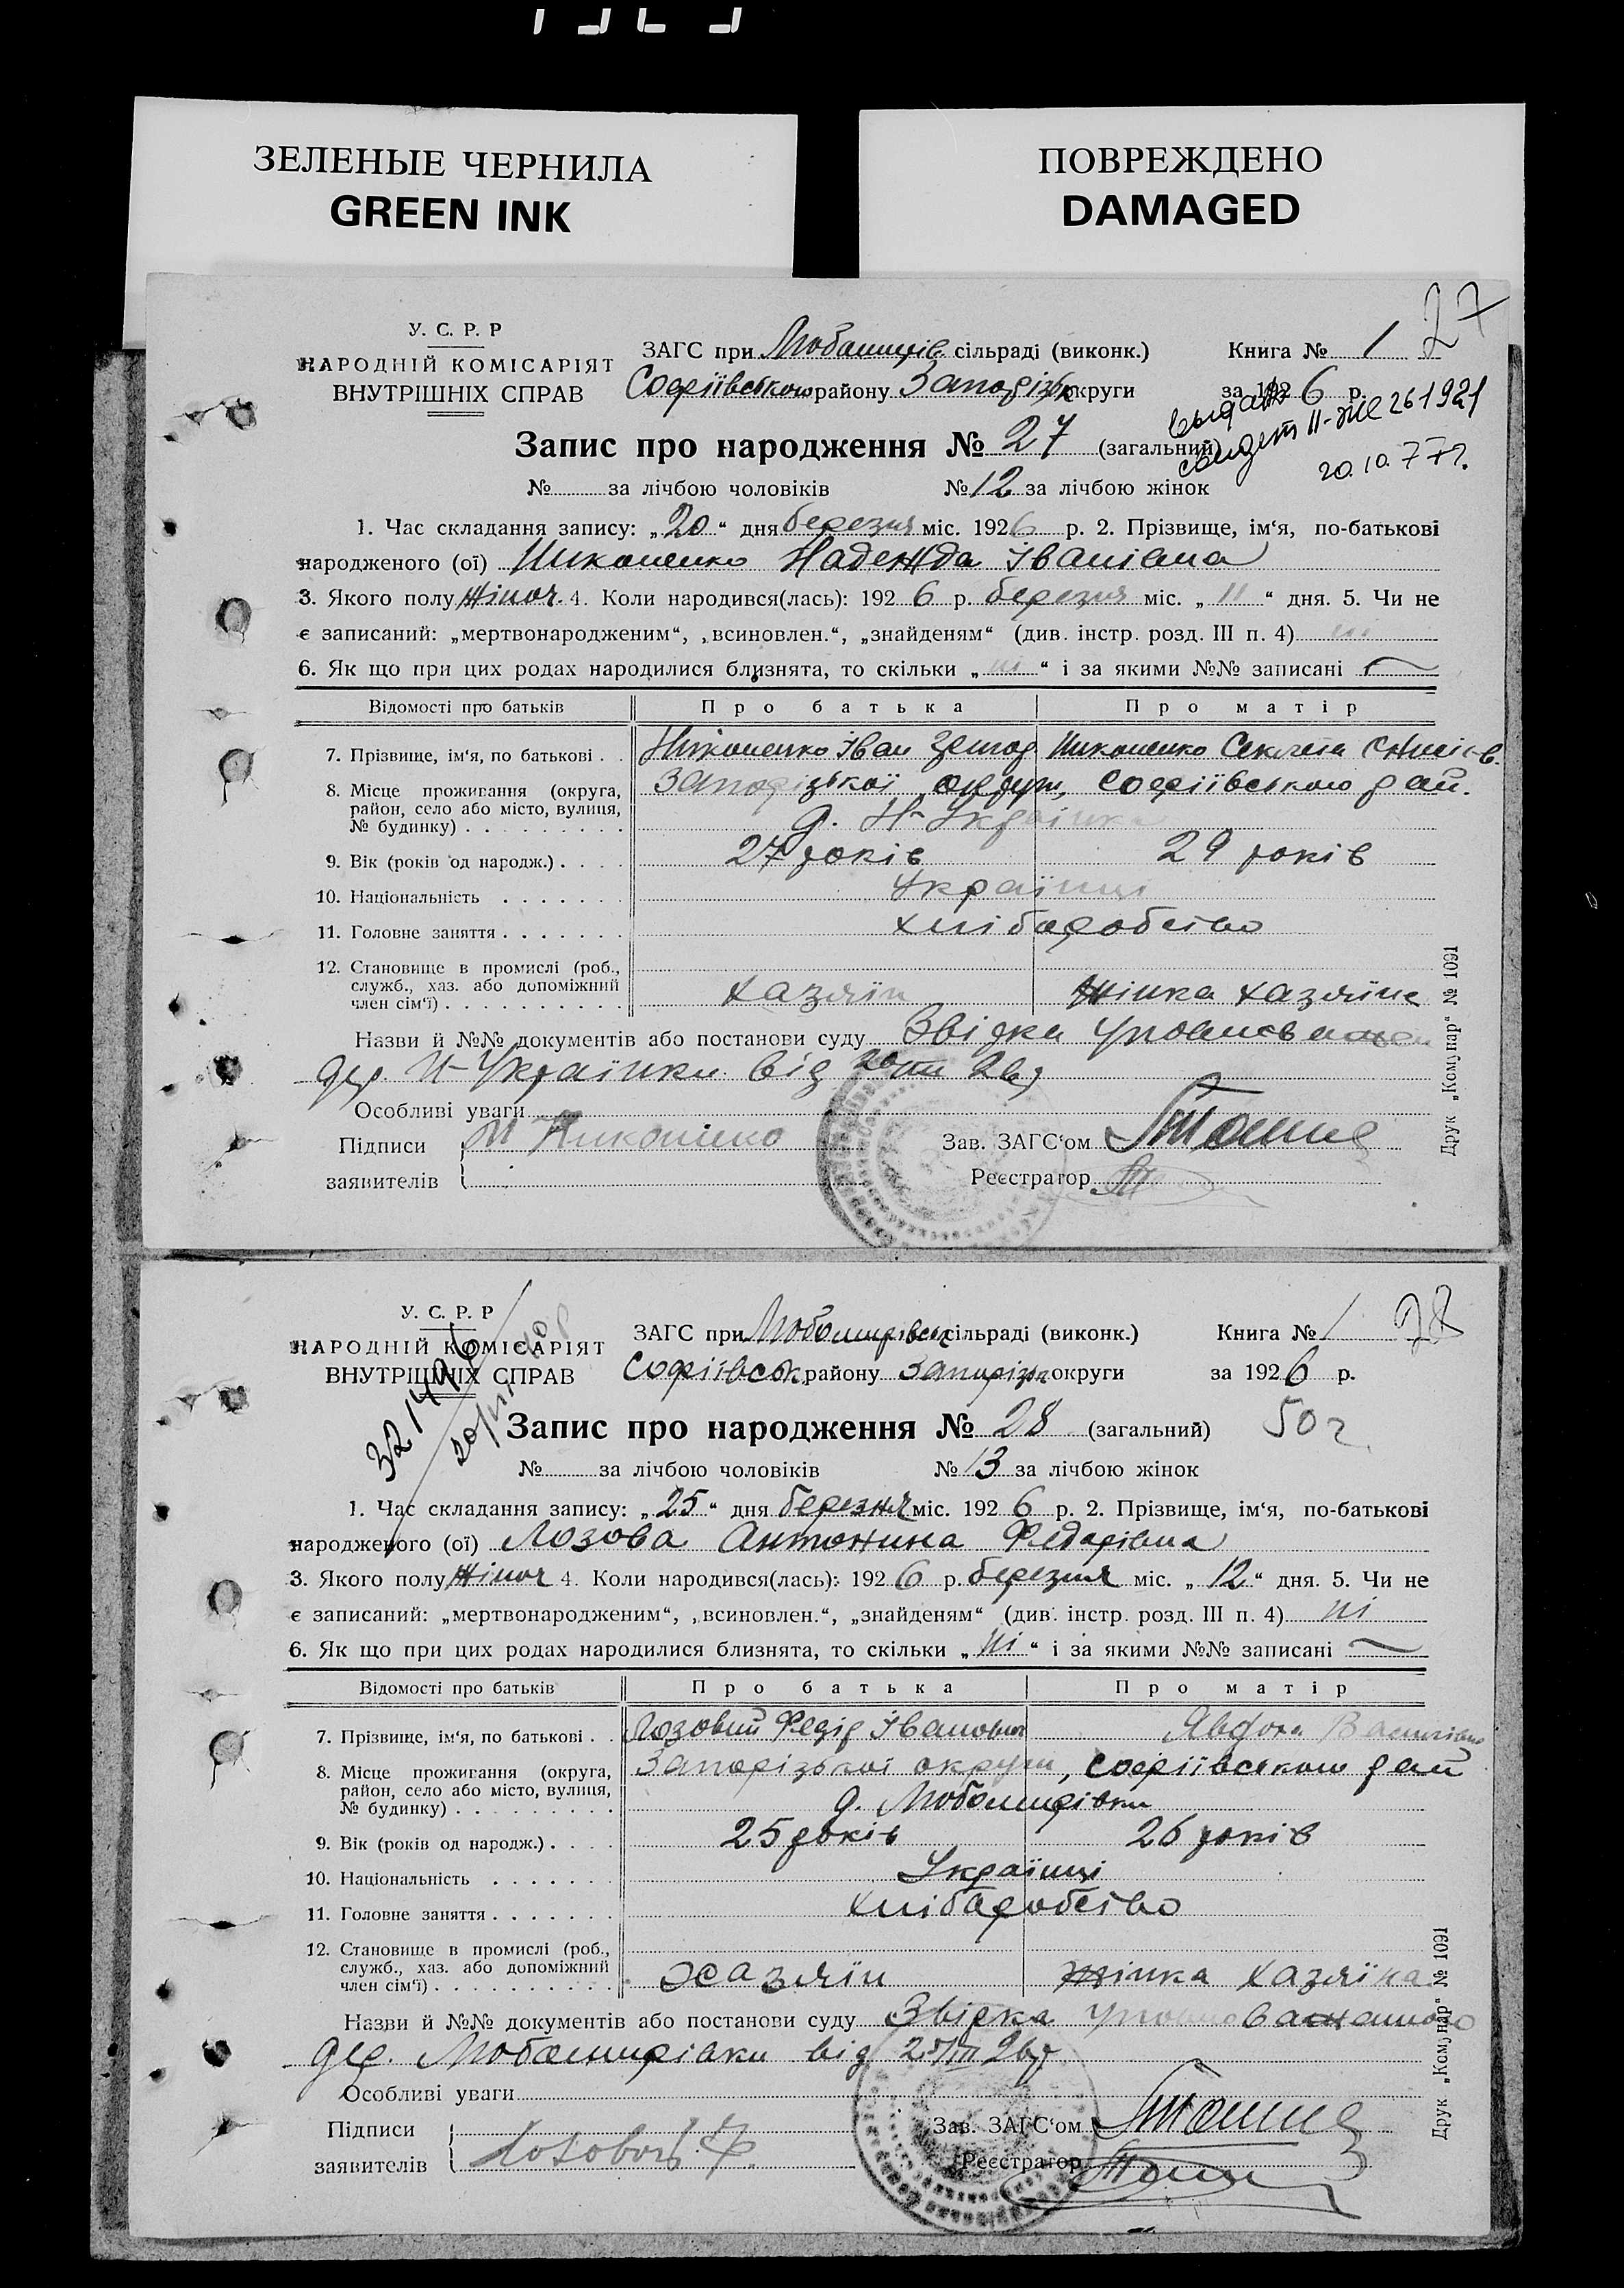 ЗЕЛЕНЫЕ ЧЕРНИЛА
GREEN INK
ПОВРЕЖДЕНО
DAMAGED
27
У. С. Р. Р
НАРОДНІЙ КОМІСАРІЯТ
ВНУТРІШНІХ СПРАВ
ЗАГС при сільраді (виконк.)
Книга № 1
Софіївського району Запорізьк округи
за 1926 р.
Запис про народження № 27 (загальний)
II-ЖС 261921
20.10.77г.
№ за лічбою чоловіків № 12 за лічбою жінок
1. Час складання запису: „20“ дня березня міс. 1926 р. 2. Прізвище, ім‘я, по-батькові
народженого (ої) Никоненко Надежда Іванівна
3. Якого полу жіноч. 4. Коли народився(лась): 1926 р. березня міс. „11“ дня. 5. Чи не
є записаний: „мертвонародженим“, „всиновлен.“, „знайденям“ (див. інстр. розд. III п. 4) ні
6. Як що при цих родах народилися близнята, то скільки „ні“ і за якими №№ записані —
Відомості про батьків Про батька Про матір
7. Прізвище, ім‘я, по батькові . . Никоненко Іван Никоненко
8. Місце проживання (округа, район, село або місто, вулиця, № будинку) Запорізької округи, Софіївського рай.
д. Н-Українка
9. Вік (років од народж.) 27 років 29 років
10. Національність Українці
11. Головне заняття хліборобство
12. Становище в промислі (роб., служб., хаз. або допоміжний член сім‘ї) хазяїн Жінка хазяїна
Назви й №№ документів або постанови суду Звідка
дер. Н-Українки від 26р
Особливі уваги
Підписи заявителів Никоненко
Зав. ЗАГС‘ом
Реєстратор
Друк „Комунар“ № 1091
28
У. С. Р. Р
НАРОДНІЙ КОМІСАРІЯТ
ВНУТРІШНІХ СПРАВ
321496
ЗАГС при сільраді (виконк.)
Книга № 1
Софіївськ. району Запорізьк округи
за 1926 р.
Запис про народження № 28 (загальний)
50 г.
№ за лічбою чоловіків № 13 за лічбою жінок
1. Час складання запису: „25“ дня березня міс. 1926 р. 2. Прізвище, ім‘я, по-батькові
народженого (ої) Лозова Антонина Федорівна
3. Якого полу жіноч 4. Коли народився(лась): 1926 р. березня міс. „12“ дня. 5. Чи не
є записаний: „мертвонародженим“, „всиновлен.“, „знайденям“ (див. інстр. розд. III п. 4) ні
6. Як що при цих родах народилися близнята, то скільки „ні“ і за якими №№ записані —
Відомості про батьків Про батька Про матір
7. Прізвище, ім‘я, по батькові . . Лозовий Федір Іванович Явдоха Василівна
8. Місце проживання (округа, район, село або місто, вулиця, № будинку) Запорізької округи, Софіївського рай
д.
9. Вік (років од народж.) 25 років 26 років
10. Національність Українці
11. Головне заняття хліборобство
12. Становище в промислі (роб., служб., хаз. або допоміжний член сім‘ї) хазяїн жінка хазяїна
Назви й №№ документів або постанови суду Звідка уповноваженого
дер. від 25/III 26р.
Особливі уваги
Підписи заявителів
Зав. ЗАГС‘ом
Реєстратор
Друк „Комунар“ № 1091